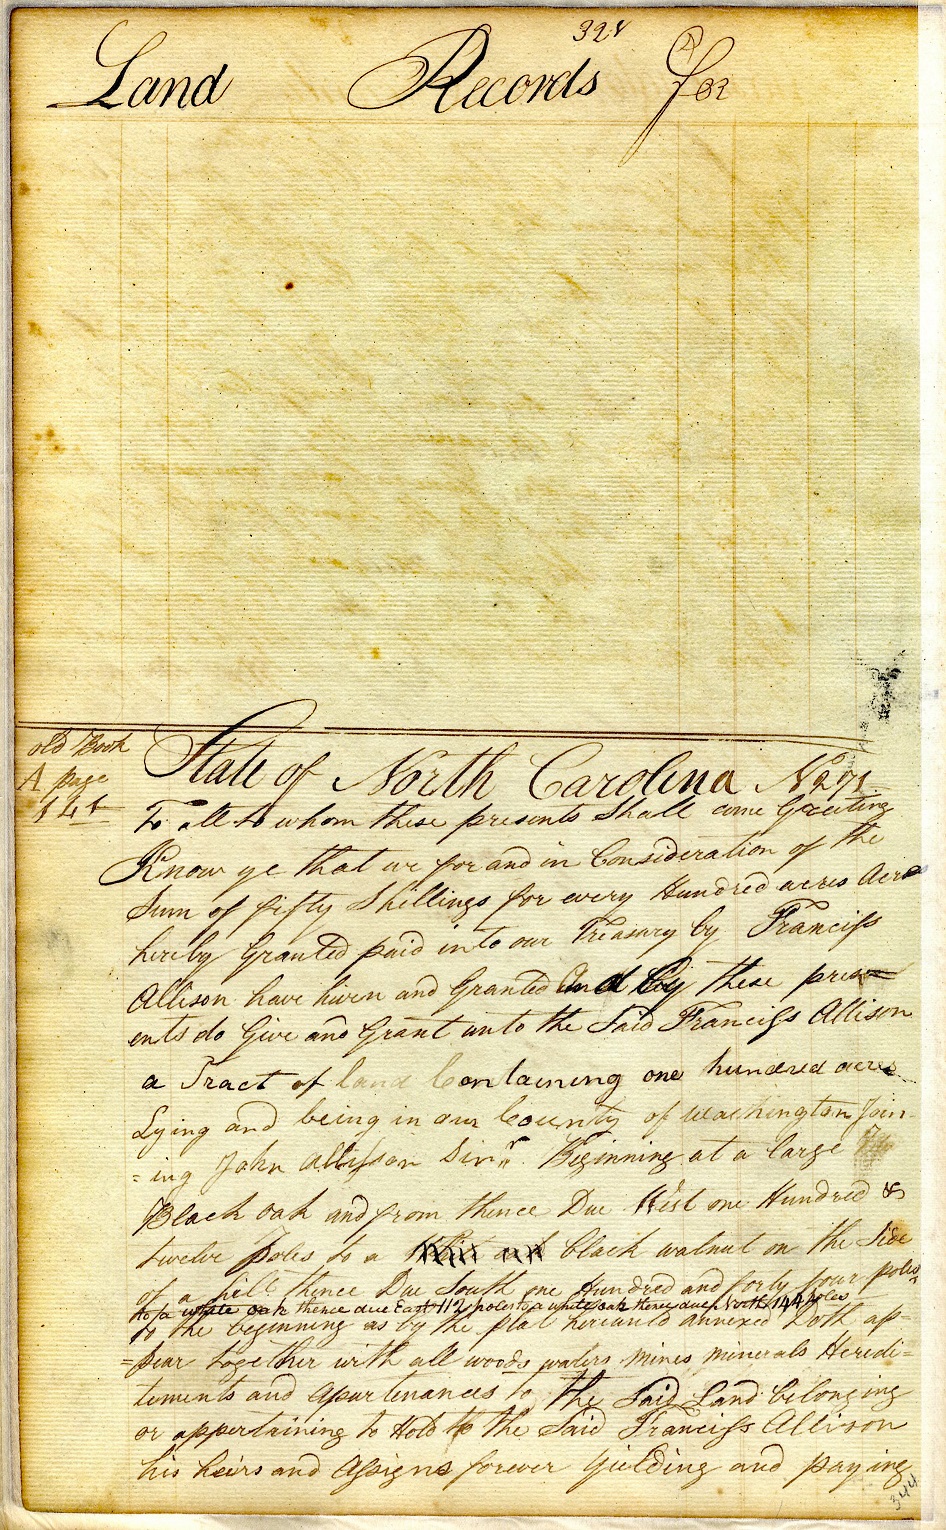 324
Land Records for
old Book
A page
141
State of North Carolina No 271
To all to whom these presents Shall come Greeting
Know ye that we for and in Consideration of the
Sum of fifty Shillings for every Hundred acres Acre
hereby Granted paid into our Treasury by Franciss
Allison have hiven and Granted And By these pres=
ents do Give and Grant unto the Said Franciss Allison
a Tract of land Containing one hundred acres
Lying and being in our County of Washington Join
=ing John Allisson Sinr. Beginning at a large
Black oak and from thence Due West one Hundred &
twelve Poles to a black walnut on the Side
of a hill thence Due South one Hundred and forty four poles
to a white oak thence due East 112 poles to a white oak thence due North 144 poles
to the beginning as by the plat hereunto annexed Doth ap=
=pear together with all woods waters mines minerals Heredi=
tements and Apurtenances to the Said Land belonging
or appertaining to Hold to the Said Franciss Allison
his heirs and Assigns forever yielding and paying
344